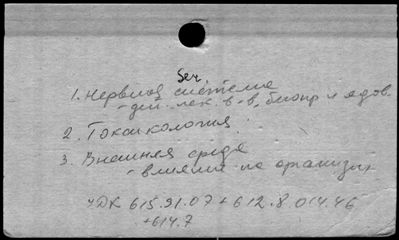 Sec.
1. Нервная система
- дей. лек. в-в, биопр и ядов.
2. Токсикология.
3. Внешняя среда
- влияние на организм
УДК 615.91.07 + 612.8.014.46
+ 614.7